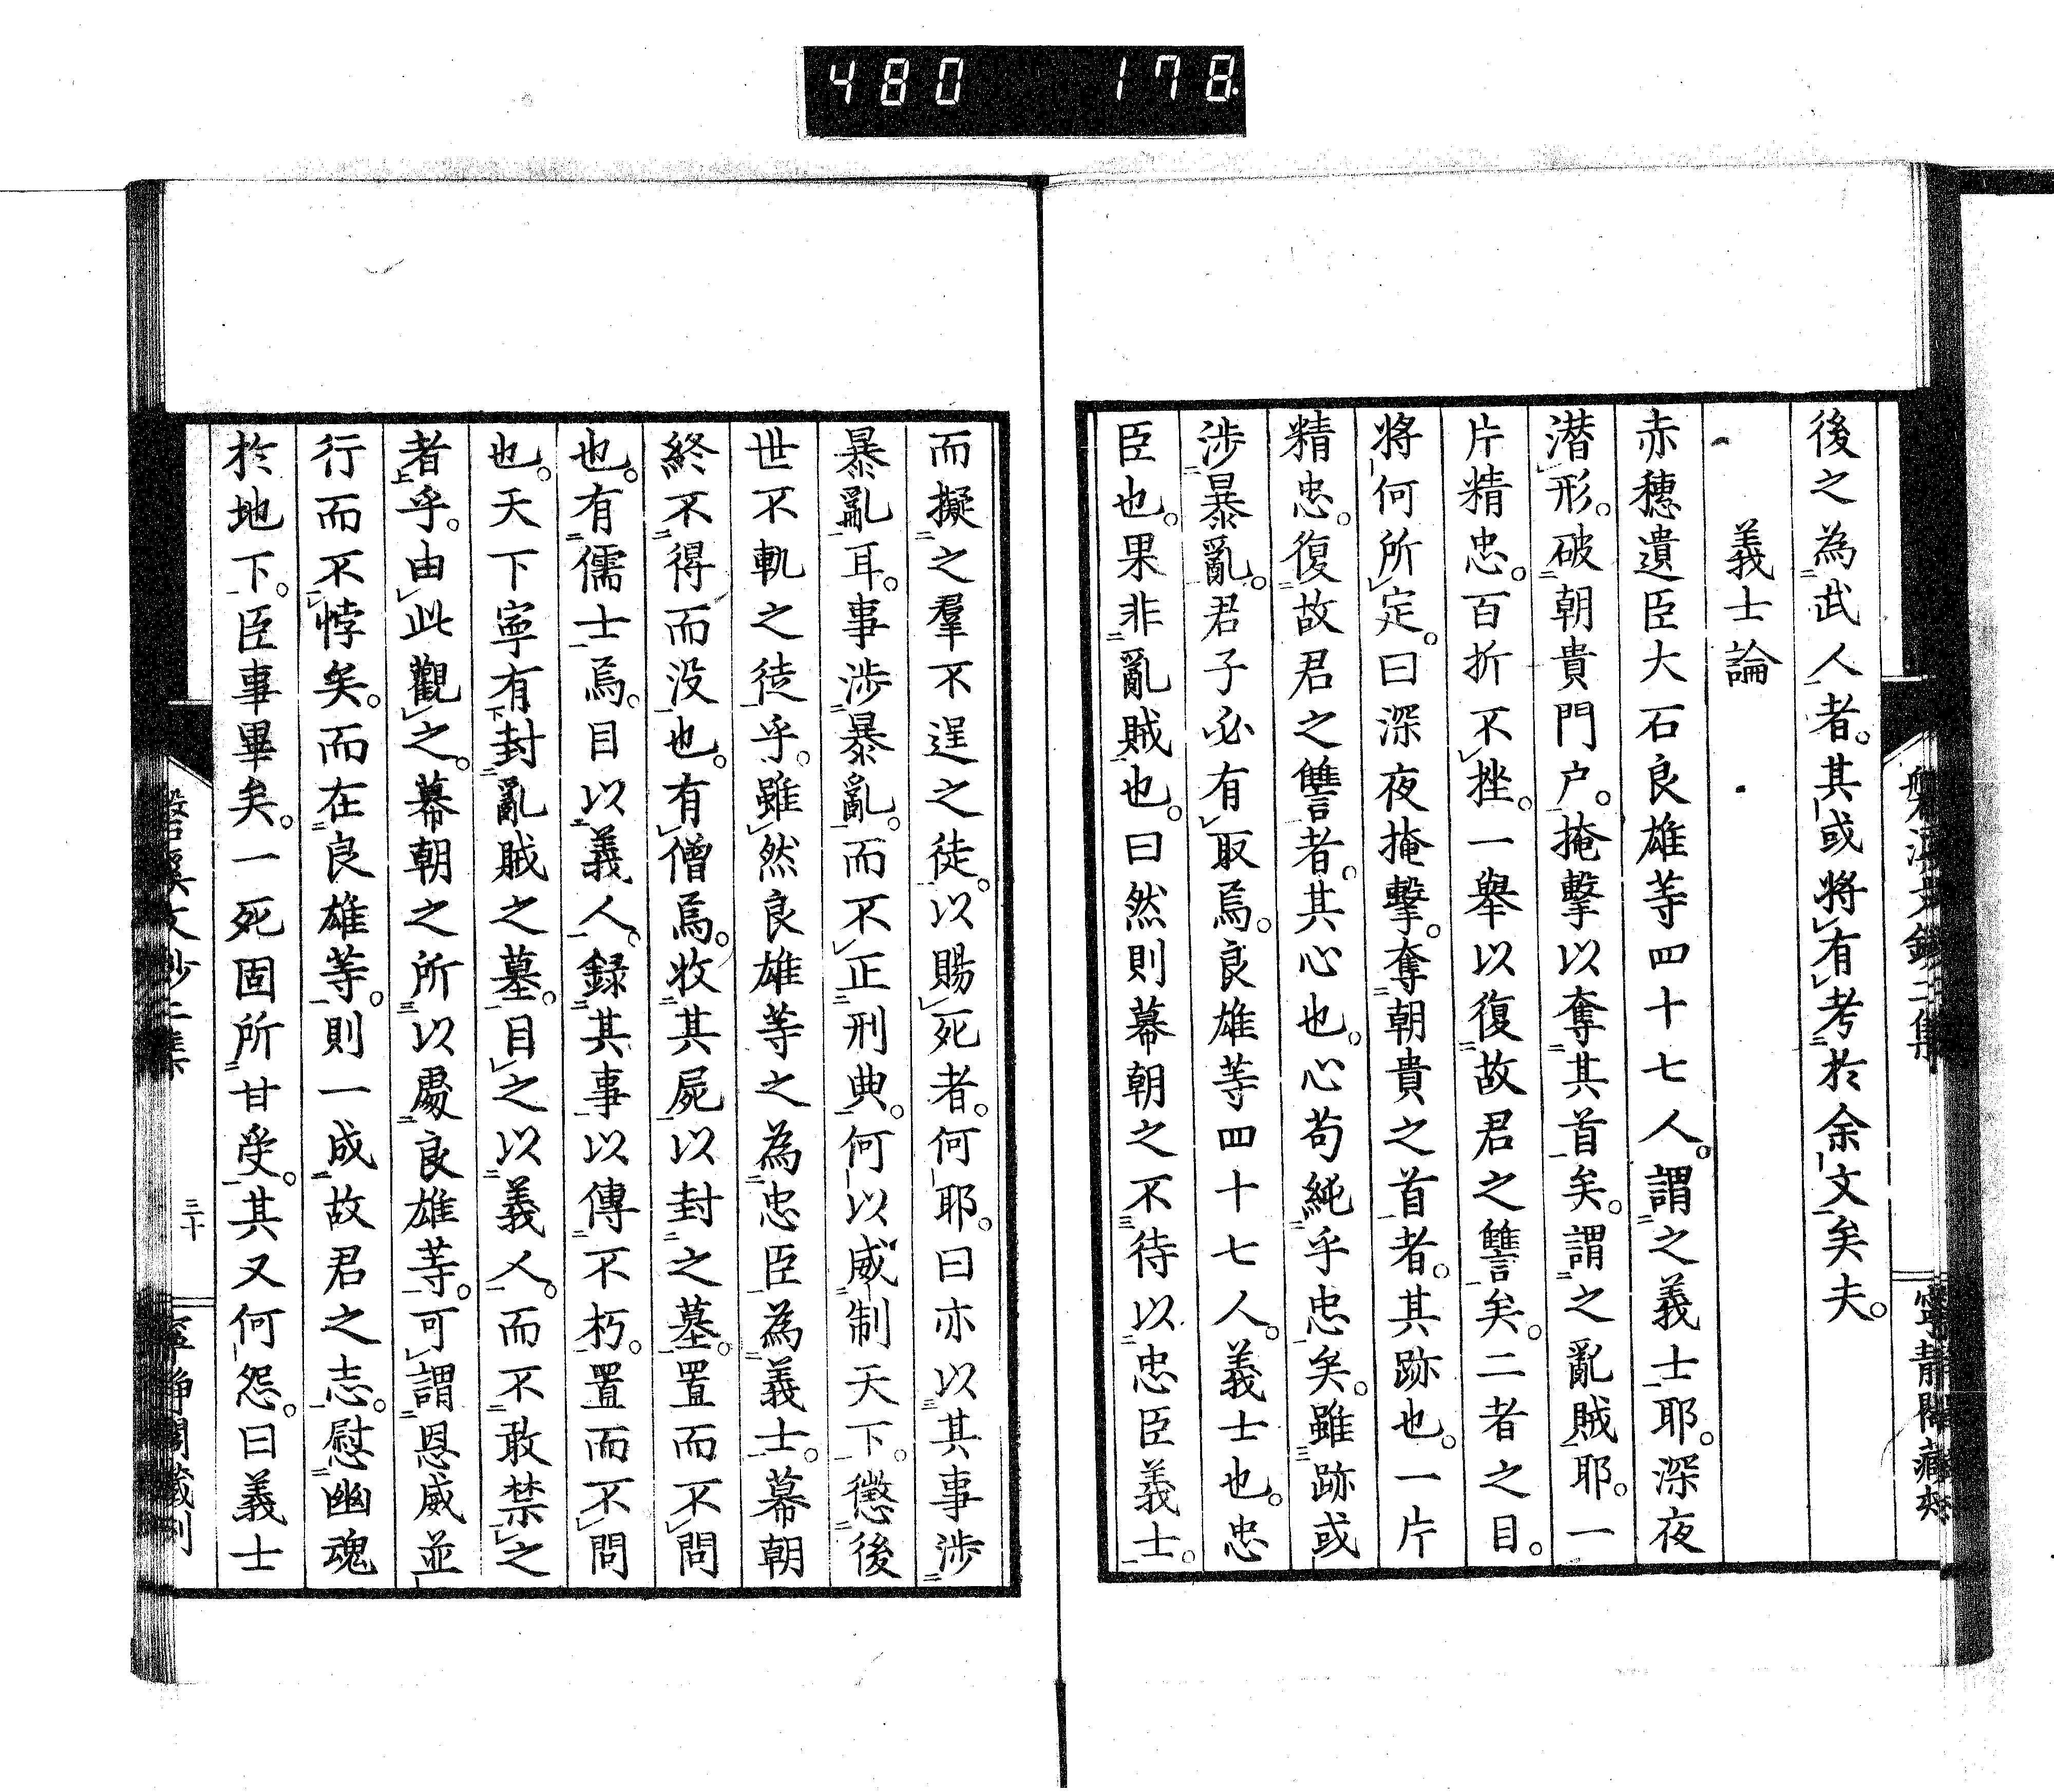 480 178
後之為武人者。其或將有考於余文矣夫。
義士論
赤穗遺臣大石良雄等四十七人。謂之義士耶。深夜
潜形。破朝貴門户。掩擊以奪其首矣。謂之亂賊耶。一
片精忠。百折不挫。一舉以復故君之讐矣。二者之目。
將何所定。曰深夜掩擊。奪朝貴之首者。其跡也。一片
精忠。復故君之讐者。其心也。心苟純乎忠矣。雖跡或
涉暴亂。君子必有取焉。良雄等四十七人。義士也。忠
臣也。果非亂賊也。曰然則幕朝之不待以忠臣義士。
而擬之羣不逞之徒。以賜死者。何耶。曰亦以其事涉
暴亂耳。事涉暴亂。而不正刑典。何以威制天下。懲後
世不軌之徒乎。雖然良雄等之為忠臣為義士。幕朝
終不得而没也。有僧焉。收其屍以封之墓。置而不問
也。有儒士焉。目以義人。錄其事以傳不朽。置而不問
也。天下寧有封亂賊之墓。目之以義人。而不敢禁之
者乎。由此觀之。幕朝之所以處良雄等。可謂恩威並
行而不悖矣。而在良雄等。則一成故君之志。慰幽魂
於地下。臣事畢矣。一死固所甘受。其又何怨。曰義士
三十